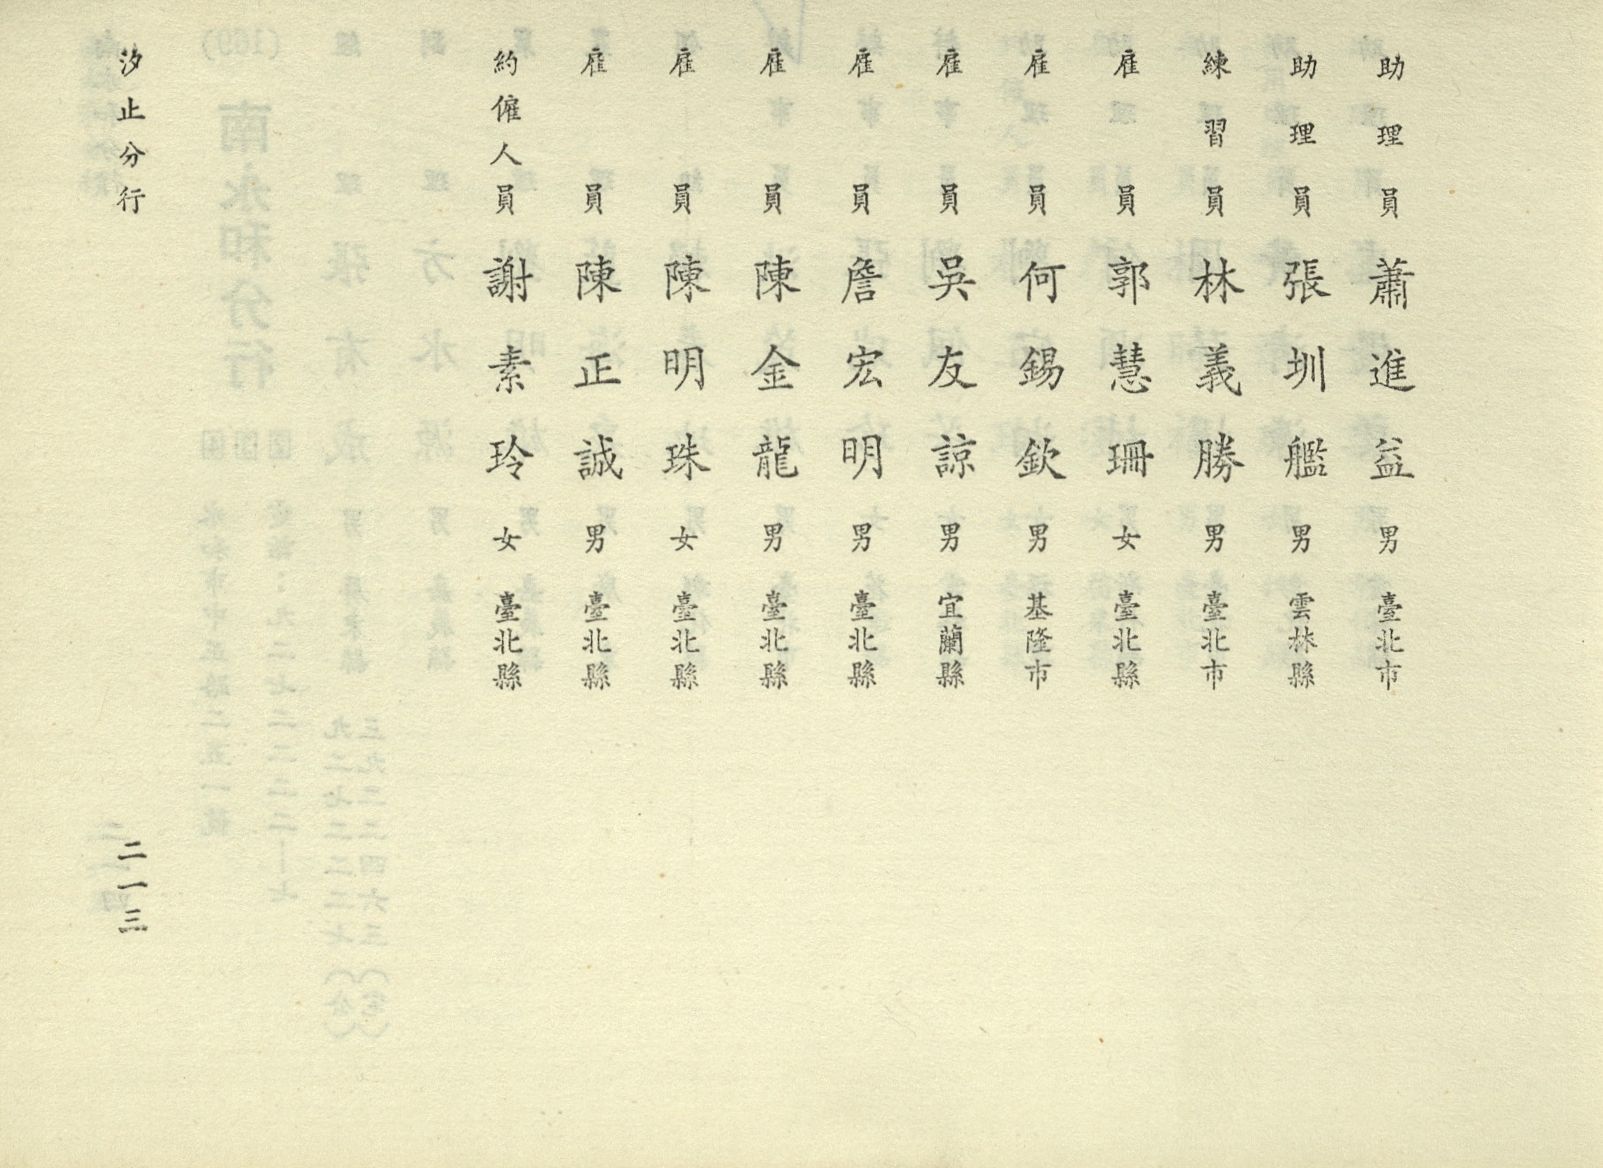 助理員 蕭進益 男 臺北市
助理員 張圳艦 男 雲林縣
練習員 林義勝 男 臺北市
雇員 郭慧珊 女 臺北縣
雇員 何錫欽 男 基隆市
雇員 吳友諒 男 宜蘭縣
雇員 詹宏明 男 臺北縣
雇員 陳金龍 男 臺北縣
雇員 陳明珠 女 臺北縣
雇員 陳正誠 男 臺北縣
約僱人員 謝素玲 女 臺北縣
汐止分行 二一三